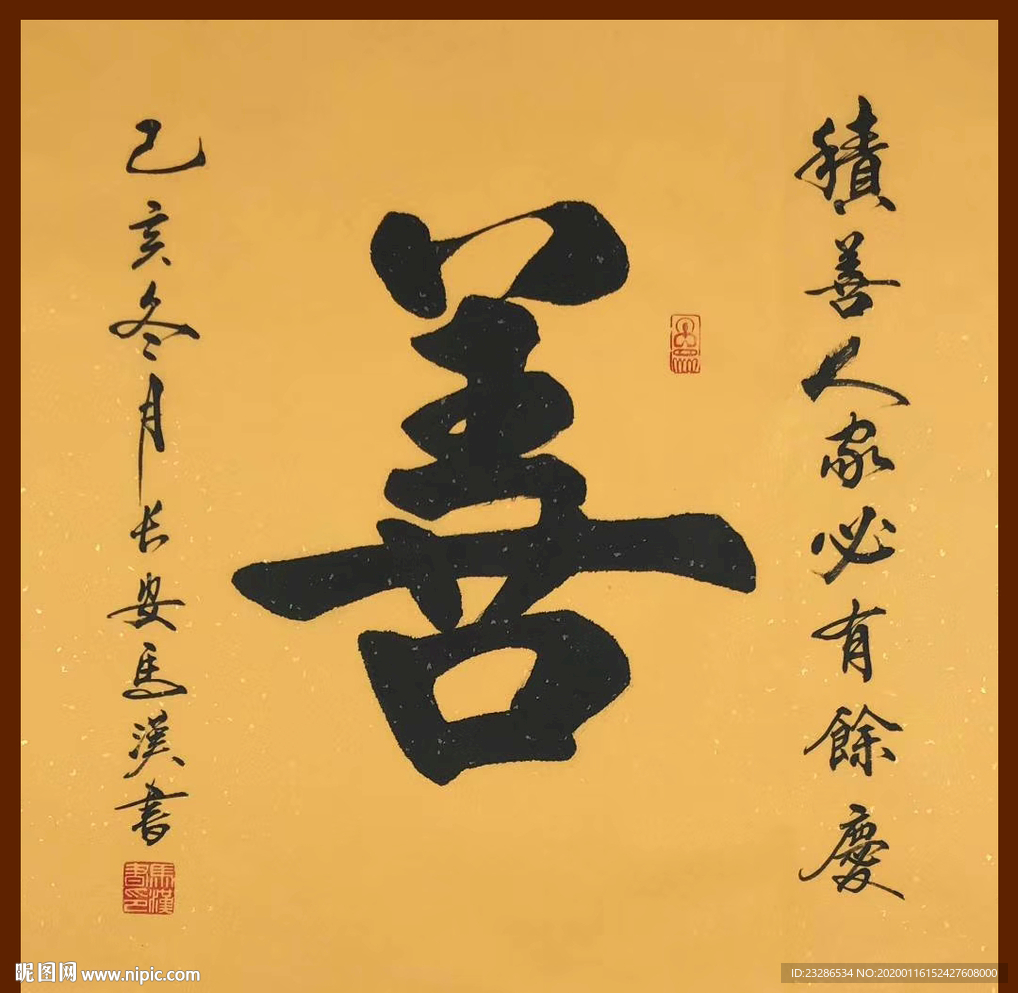 積善人家必有餘慶
善
己亥冬月长安馬漢书
馬漢書印
昵图网 www.nipic.com
ID:23286534 NO:20200116152427608000